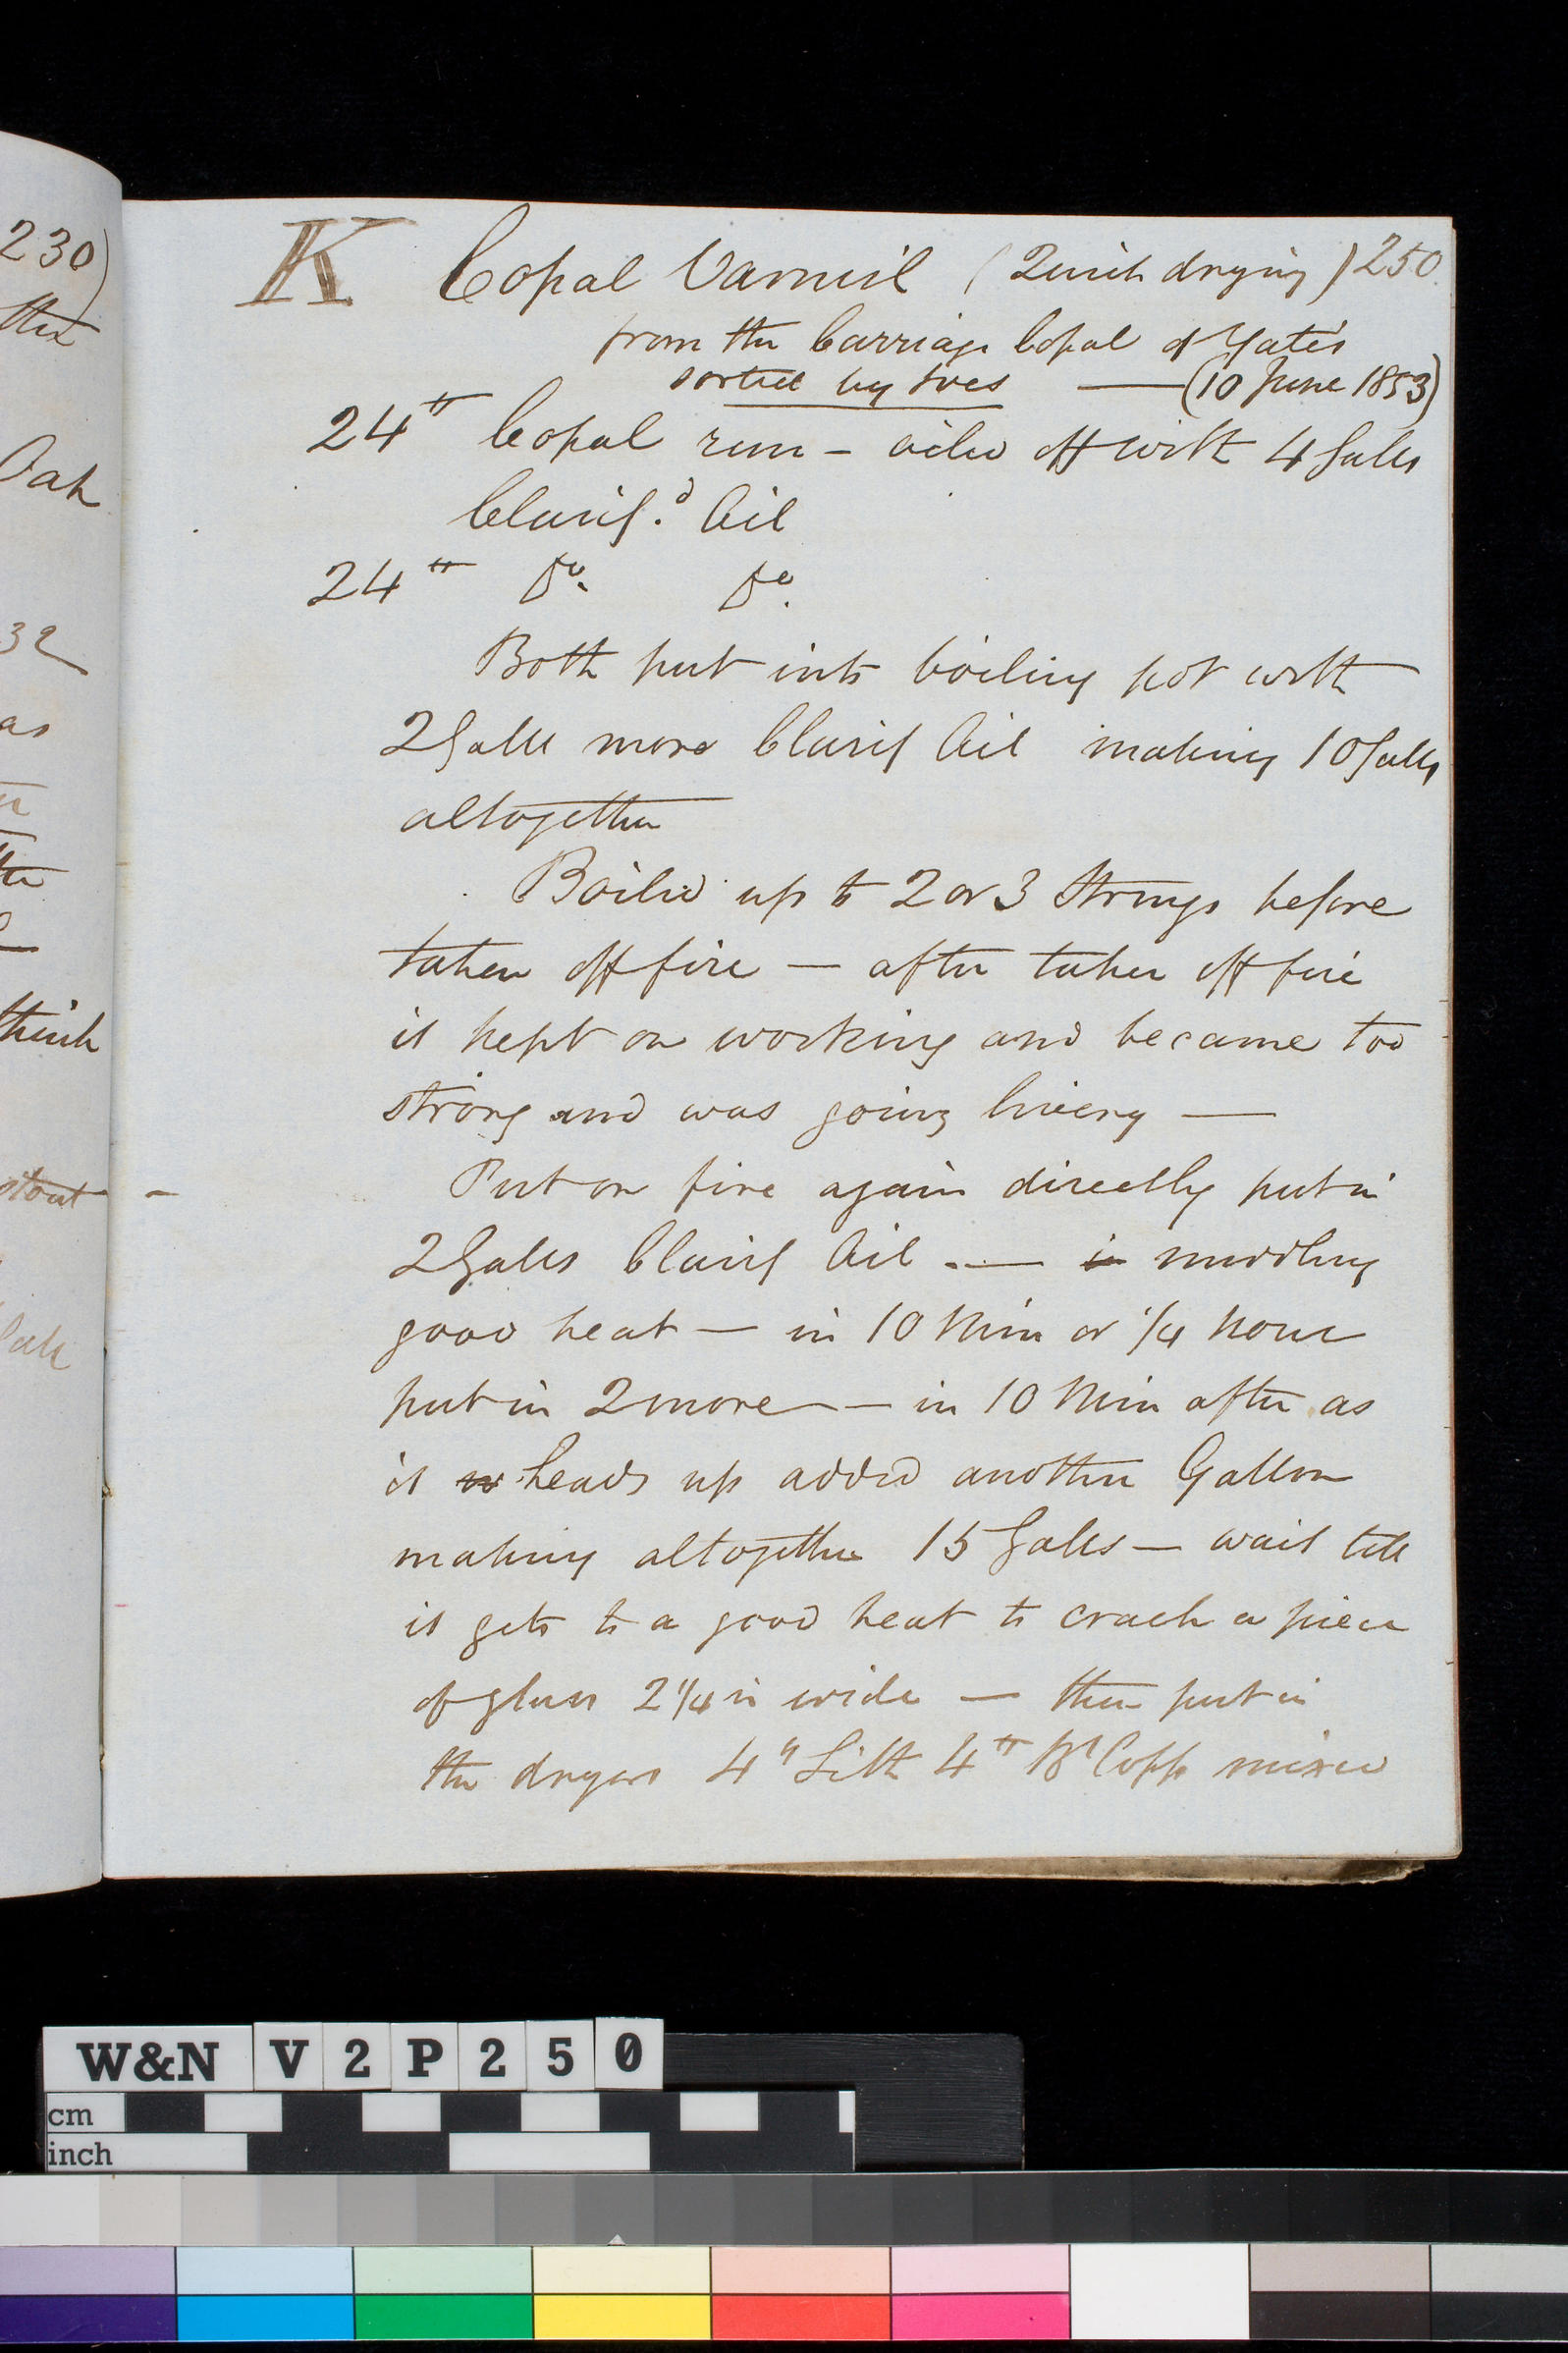 230)
the
Oak
32
as
the
think
stout -
K Copal Varnish (Quick drying) 250
from the Carriage Copal of Yates
sorted by Ives — (10 June 1853)
24 lb Copal run - oiled off with 4 Galls
Clarif.d Oil
24 lb Do. Do.
Both put into boiling pot with
2 Galls more Clarif Oil making 10 Galls
altogether
Boiled up to 2 or 3 Strings before
taken off fire — after taken off fire
it kept on working and became too
strong and was going livery —
Put on fire again directly put in
2 Galls Clarif Oil — middling
good heat — in 10 Min or 1/4 hour
put in 2 more — in 10 Min after as
it heads up added another Gallon
making altogether 15 Galls — wait till
it gets to a good heat to crack a piece
of glass 2 1/4 in wide — then put in
the dryers 4 " Lith 4 lb Copp mixed
W&N V2P250
cm
inch